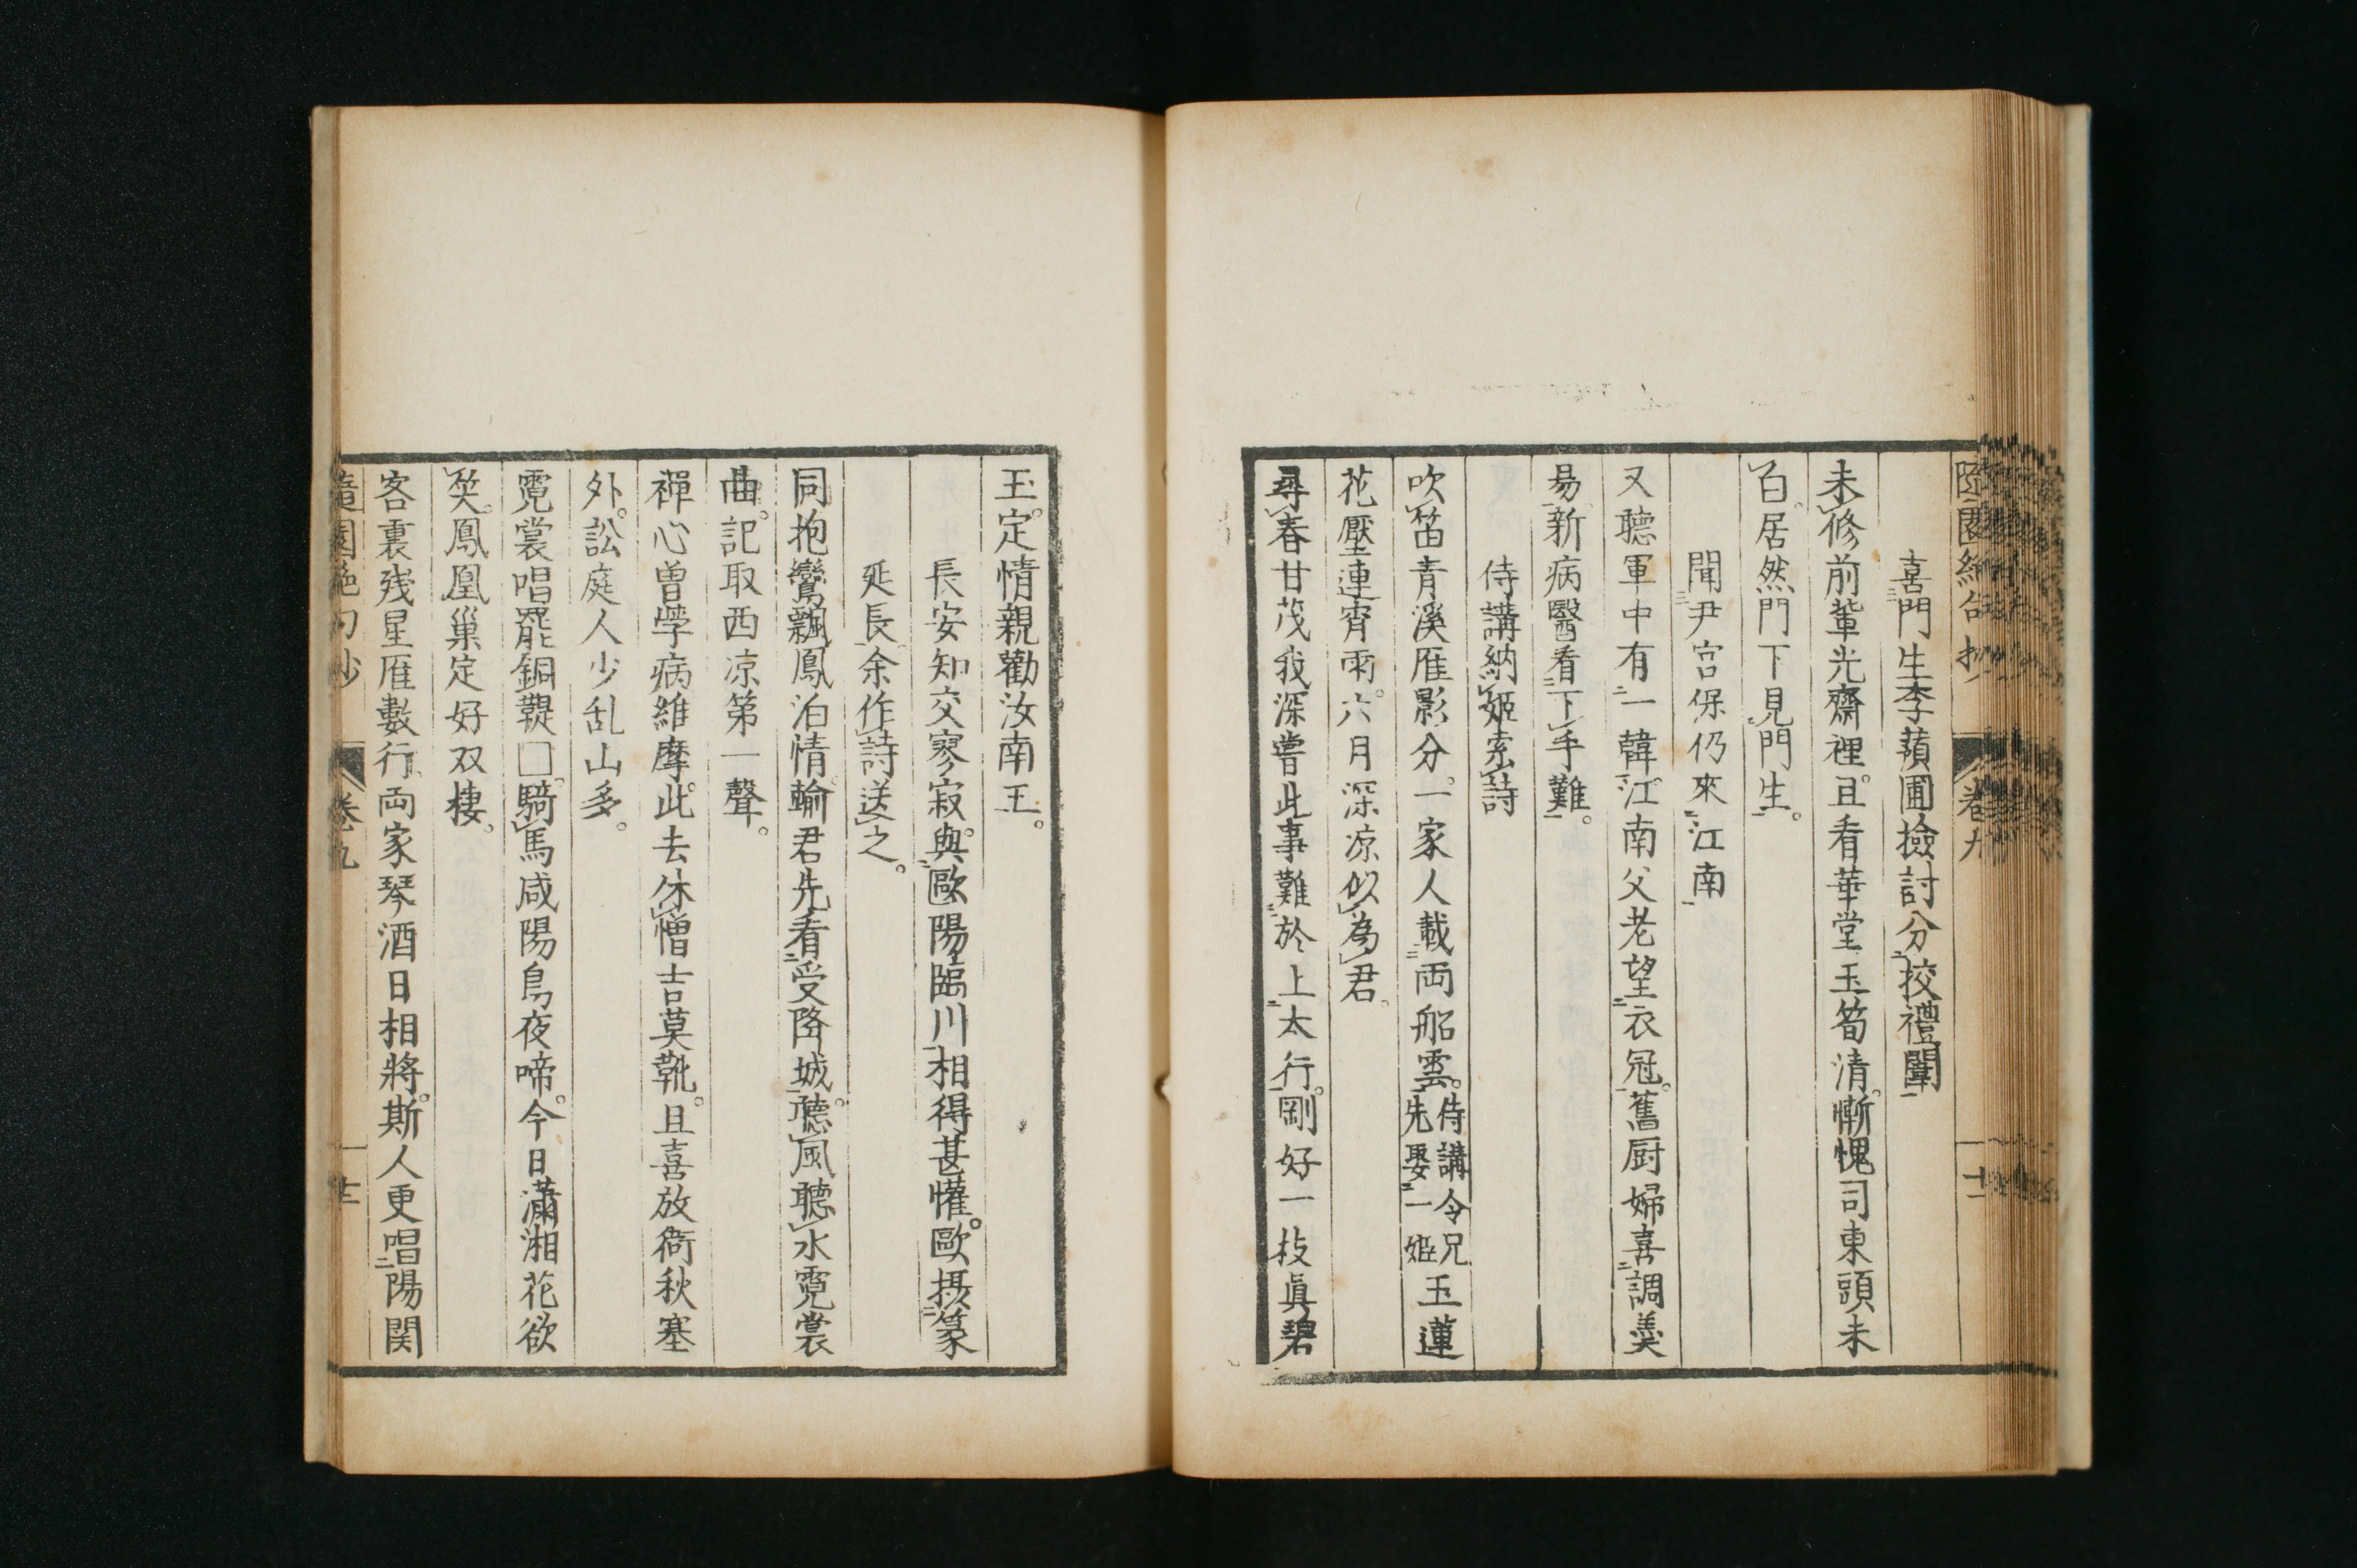 喜門生李蘋圃撿討分挍禮闈
未修前輩光齋裡。且看華堂玉筍清。慚愧司東頭未
白。居然門下見門生。
聞尹宮保仍來江南
又聽軍中有一韓。江南父老望衣冠。舊厨婦喜調羮
易。新病醫看下手難。
侍講納姬索詩
吹笛青溪雁影分。一家人載両船雲。侍講令兄先娶一姬玉蓮
花壓連宵雨。六月深凉似為君。
尋春甘茂我深嘗此事難於上太行。剛好一枝眞碧
玉。定情親勸汝南王。
長安知交寥寂。與歐陽臨川相得甚懽。歐摂篆
延長余作詩送之。
同抱鸞飄鳳泊情。輸君先看受降城。聽風聽水霓裳
曲。記取西凉第一聲。
禪心曽學病維摩。此去休憎吉莫靴。且喜放衙秋塞
外。訟庭人少乱山多。
霓裳唱罷銅鞮□。騎馬咸陽烏夜啼。今日瀟湘花欲
笑。鳳凰巢定好双棲。
客裏残星雁數行。両家琴酒日相將。斯人更唱陽関
隨園絶句抄 卷九